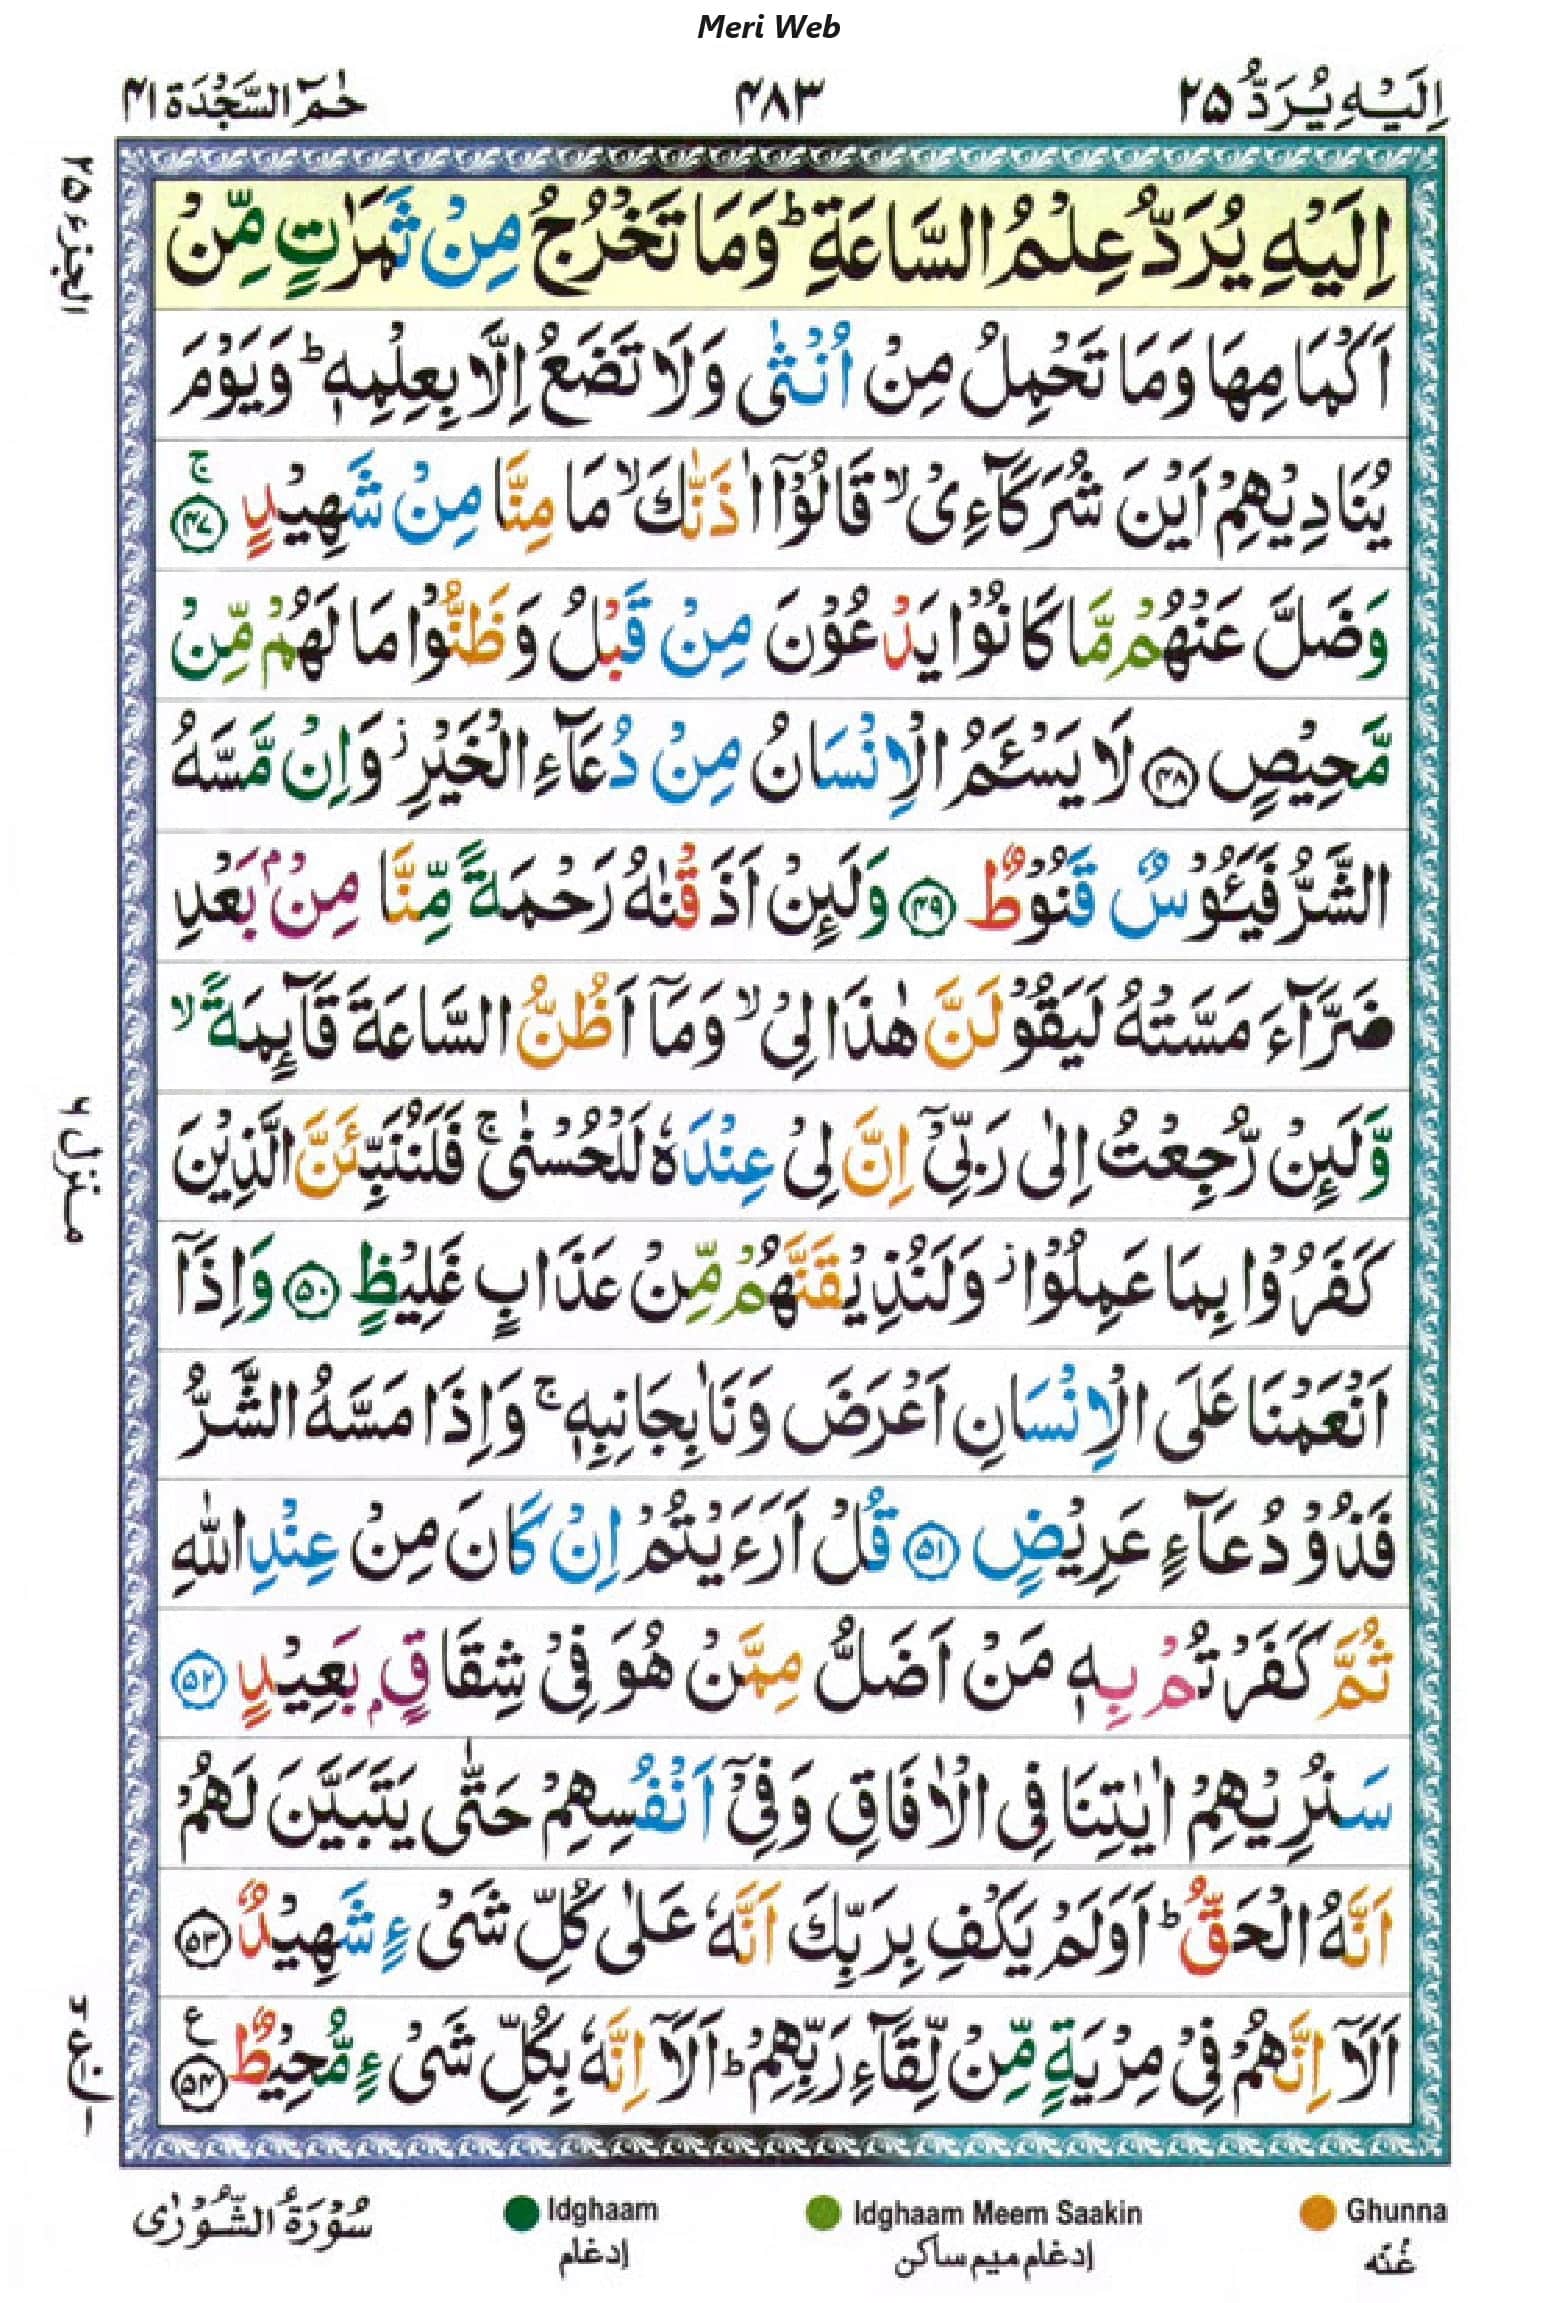 Meri Web
اِلَيْهِ يُرَدُّ ٢٥
٤٨٣
حٰمٓ السَّجْدَة ٤١
اِلَيْهِ يُرَدُّ عِلْمُ السَّاعَةِ ؕ وَمَا تَخْرُجُ مِنْ ثَمَرٰتٍ مِّنْ
اَكْمَامِهَا وَمَا تَحْمِلُ مِنْ اُنْثٰى وَلَا تَضَعُ اِلَّا بِعِلْمِهٖ ؕ وَيَوْمَ
يُنَادِيْهِمْ اَيْنَ شُرَكَآءِىْ ۙ قَالُوْۤا اٰذَنّٰكَ ۙ مَا مِنَّا مِنْ شَهِيْدٍ ۚ ﴿۴۷﴾
وَضَلَّ عَنْهُمْ مَّا كَانُوْا يَدْعُوْنَ مِنْ قَبْلُ وَظَنُّوْا مَا لَهُمْ مِّنْ
مَّحِيْصٍ ﴿۴۸﴾ لَا يَسْئَمُ الْاِنْسَانُ مِنْ دُعَآءِ الْخَيْرِ ؗ وَاِنْ مَّسَّهُ
الشَّرُّ فَيَئُوْسٌ قَنُوْطٌ ﴿۴۹﴾ وَلَئِنْ اَذَقْنٰهُ رَحْمَةً مِّنَّا مِنْۢ بَعْدِ
ضَرَّآءَ مَسَّتْهُ لَيَقُوْلَنَّ هٰذَا لِىْ ۙ وَمَاۤ اَظُنُّ السَّاعَةَ قَآئِمَةً ۙ
وَّلَئِنْ رُّجِعْتُ اِلٰى رَبِّىْۤ اِنَّ لِىْ عِنْدَهٗ لَلْحُسْنٰى ۚ فَلَنُنَبِّئَنَّ الَّذِيْنَ
كَفَرُوْا بِمَا عَمِلُوْا ؗ وَلَنُذِيْقَنَّهُمْ مِّنْ عَذَابٍ غَلِيْظٍ ﴿۵۰﴾ وَاِذَاۤ
اَنْعَمْنَا عَلَى الْاِنْسَانِ اَعْرَضَ وَنَاٰ بِجَانِبِهٖ ۚ وَاِذَا مَسَّهُ الشَّرُّ
فَذُوْ دُعَآءٍ عَرِيْضٍ ﴿۵۱﴾ قُلْ اَرَءَيْتُمْ اِنْ كَانَ مِنْ عِنْدِ اللّٰهِ
ثُمَّ كَفَرْتُمْ بِهٖ مَنْ اَضَلُّ مِمَّنْ هُوَ فِىْ شِقَاقٍۭ بَعِيْدٍ ﴿۵۲﴾
سَنُرِيْهِمْ اٰيٰتِنَا فِى الْاٰفَاقِ وَفِىْۤ اَنْفُسِهِمْ حَتّٰى يَتَبَيَّنَ لَهُمْ
اَنَّهُ الْحَقُّ ؕ اَوَلَمْ يَكْفِ بِرَبِّكَ اَنَّهٗ عَلٰى كُلِّ شَىْءٍ شَهِيْدٌ ﴿۵۳﴾
اَلَاۤ اِنَّهُمْ فِىْ مِرْيَةٍ مِّنْ لِّقَآءِ رَبِّهِمْ ؕ اَلَاۤ اِنَّهٗ بِكُلِّ شَىْءٍ مُّحِيْطٌ ﴿۵۴﴾ ع
الجزء ٢٥
منزل ٦
سُوْرَةُ الشُّوْرٰى
Idghaam
إدغام
Idghaam Meem Saakin
إدغام ميم ساكن
Ghunna
غُنّه